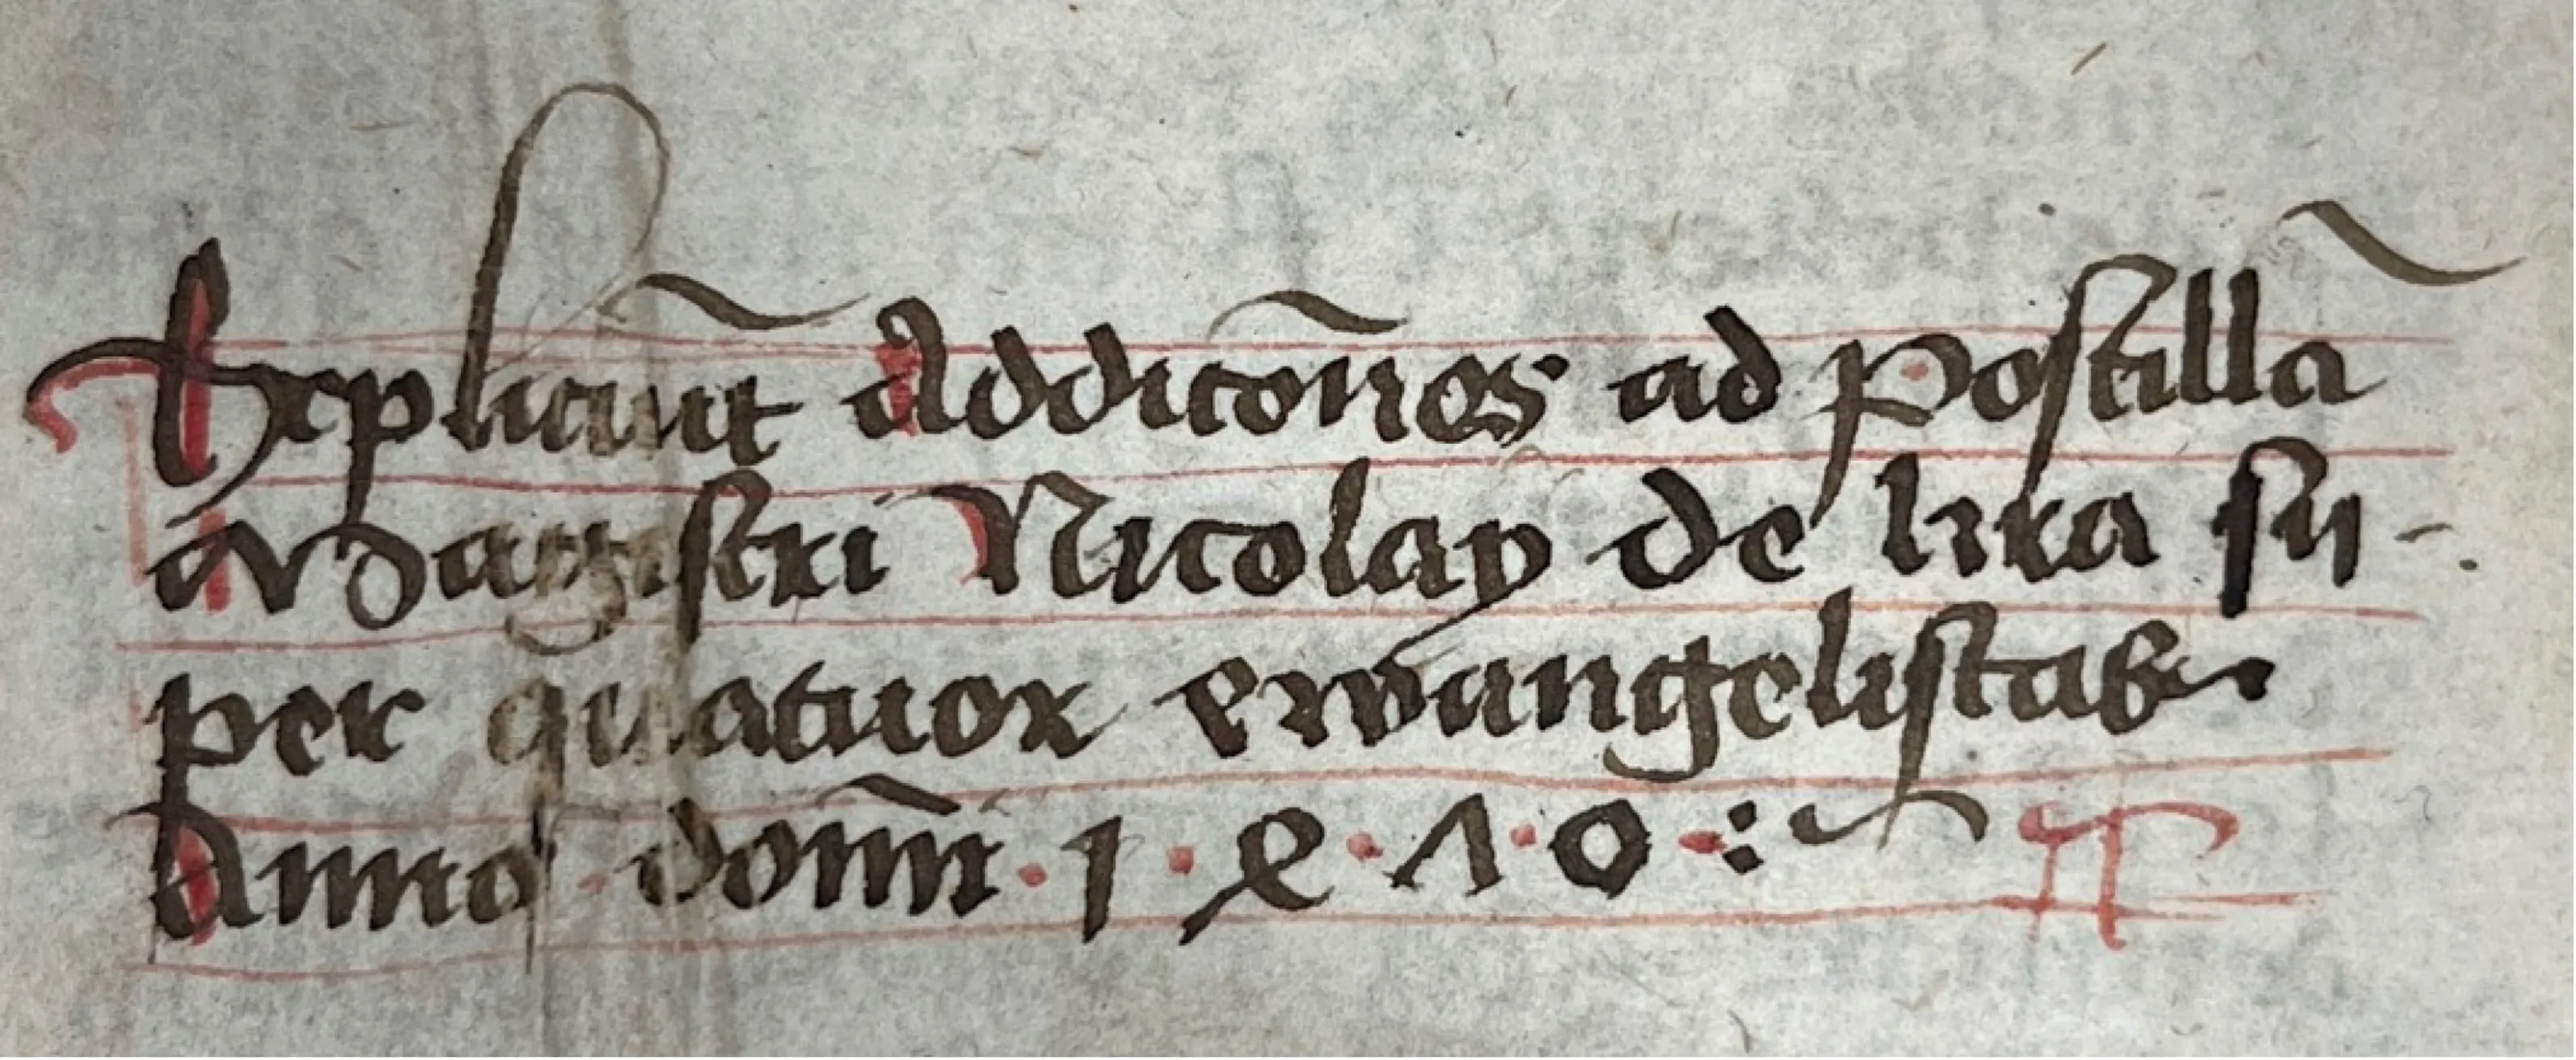 Explicīūt Addico̅nes ad Postillā
Magistri Nicolay de lira su-
per quatuor ewangelistas
Anno domī · 1 · 4 · 7 · 0 ·: